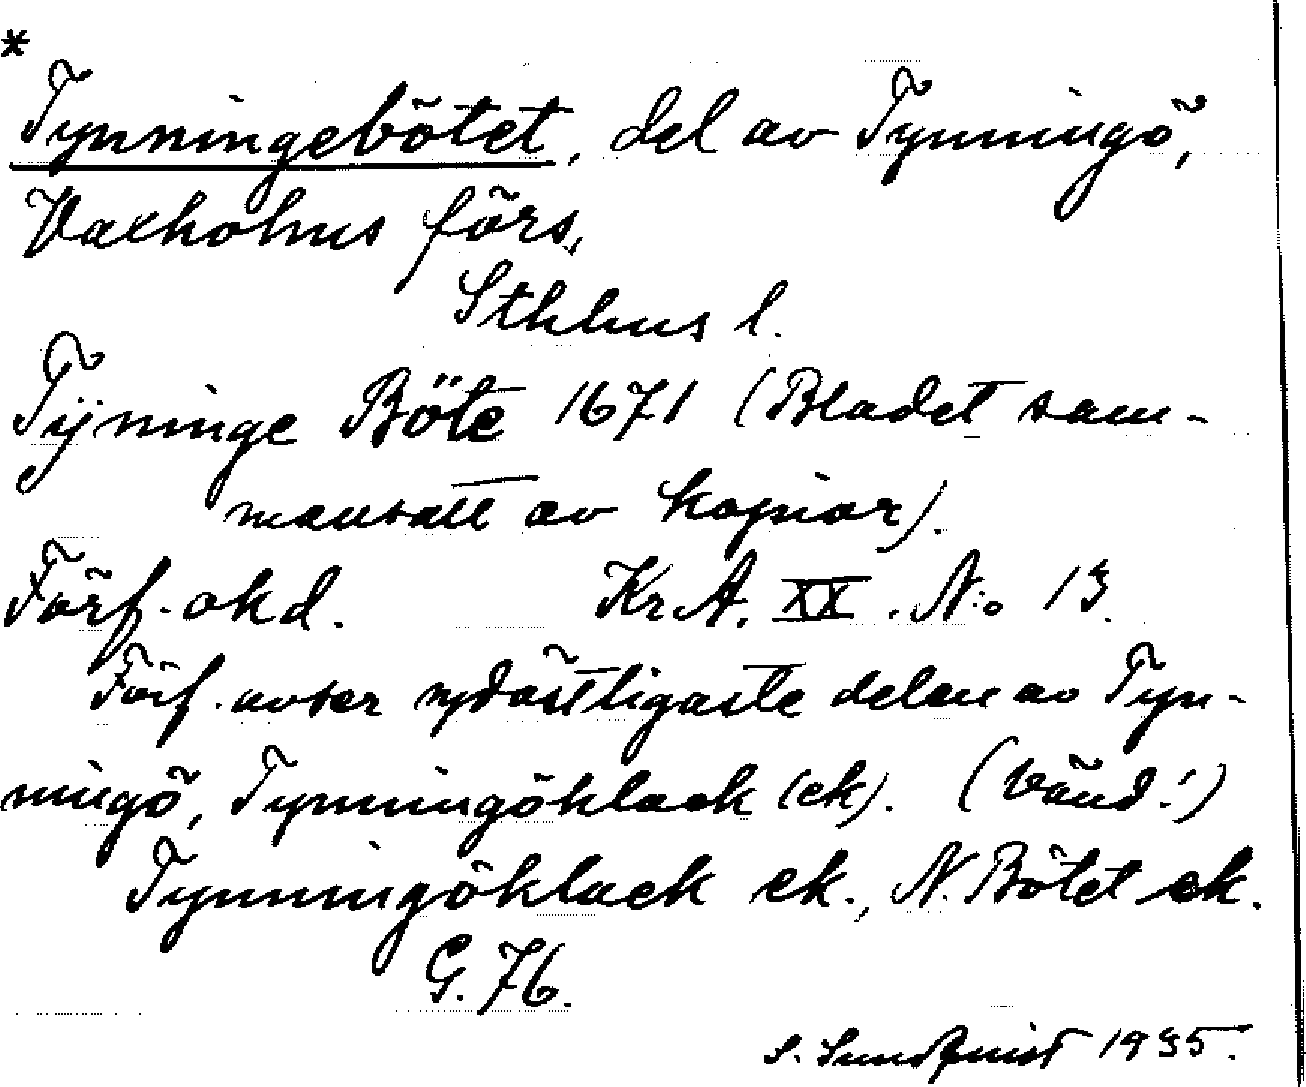 *
Tynningebötet, del av Tynningö,
Vaxholms förs,
Sthlms l.
Tÿninge Böte 1671 (Bladet sam-
mansatt av kopior).
Förf. okd. Kr.A. XX. No 13.
Förf. avser nydöstligaste delen av Tyn-
ningö, Tynningöklack (ek). (Vänd!)
Tynningöklack ek., N. Bötet ek.
G. 76.
S. Sundquist 1935.